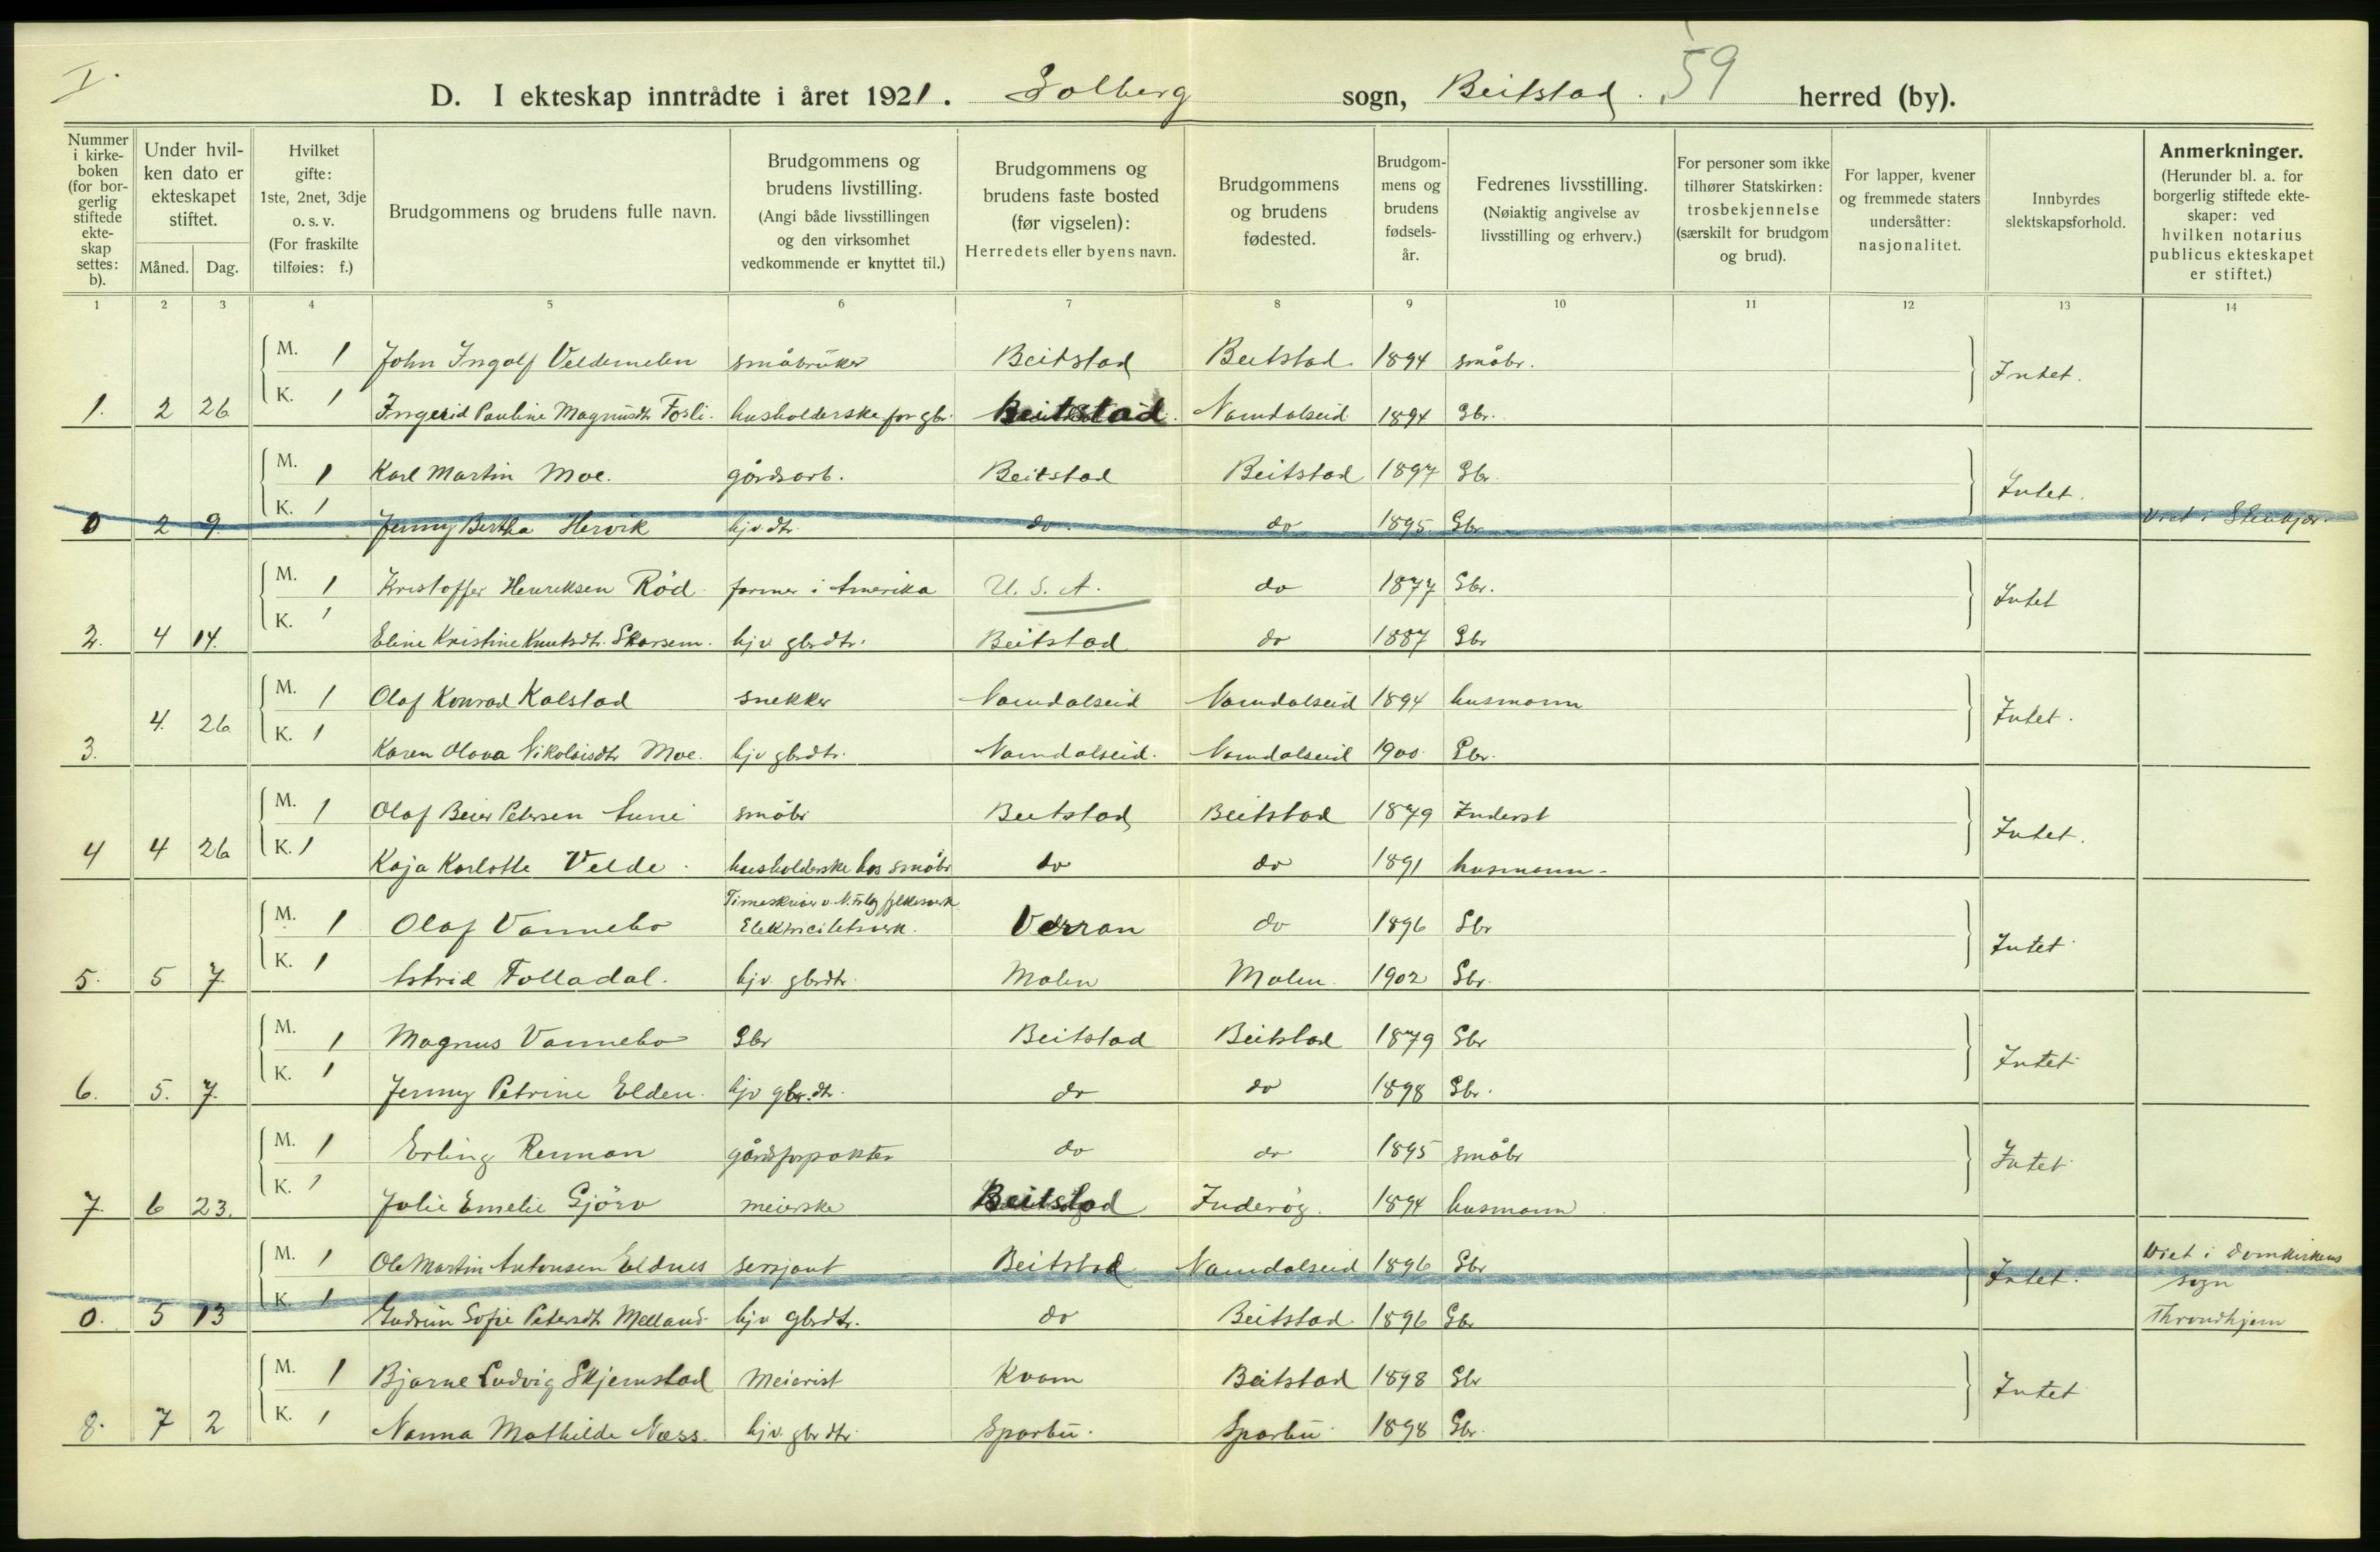 I.
D. I ekteskap inntrådte i året 1921. Solberg sogn, Beitstad. 59 herred (by).
Nummer i kirkeboken (for borgerlig stiftede ekteskap settes: b).
Under hvilken dato er ekteskapet stiftet.
Måned. Dag.
Hvilket gifte: 1ste, 2net, 3dje o. s. v. (For fraskilte tilføies: f.)
Brudgommens og brudens fulle navn.
Brudgommens og brudens livstilling. (Angi både livsstillingen og den virksomhet vedkommende er knyttet til.)
Brudgommens og brudens faste bosted (før vigselen): Herredets eller byens navn.
Brudgommens og brudens fødested.
Brudgommens og brudens fødselsår.
Fedrenes livsstilling. (Nøiaktig angivelse av livsstilling og erhverv.)
For personer som ikke tilhører Statskirken: trosbekjennelse (særskilt for brudgom og brud).
For lapper, kvener og fremmede staters undersåtter: nasjonalitet.
Innbyrdes slektskapsforhold.
Anmerkninger. (Herunder bl. a. for borgerlig stiftede ekteskaper: ved hvilken notarius publicus ekteskapet er stiftet.)
1 2 3 4 5 6 7 8 9 10 11 12 13 14
M. 1 John Ingolf Veldemelen småbruker Beitstad Beitstad 1894 småbr. Intet.
1. 2 26 K. 1 Ingerid Pauline Magnusdtr Fosli. husholderske for gbr. Beitstad. Namdalseid 1894 Gbr.
M. 1 Karl Martin Moe. gårdsarb. Beitstad Beitstad 1897 Gbr. Intet.
0 2 9. K. 1 Jenny Bertha Hervik hjv dtr. do. do 1895 Gbr Viet i Stenkjær.
M. 1 Kristoffer Henriksen Röd farmer i Amerika U. S. A. do 1877 Gbr. Intet
2. 4 14. K. 1 Eline Kristine Knutsdtr. Skarsem. hjv gbrdtr. Beitstad do 1887 Gbr
M. 1 Olaf Konrad Kalstad snekker Namdalseid Namdalseid 1894 husmann Intet.
3. 4. 26 K. 1 Karen Olava Nikolaisdtr Moe. hjv gbrdtr. Namdalseid. Namdalseid 1900. Gbr.
M. 1 Olaf Beier Petersen Aune småbr Beitstad Beitstad 1879 Inderst Intet.
4 4 26 K. 1 Kaja Karlotte Velde. husholderske hos småbr do do 1891 husmann
M. 1 Olaf Vannebo Timeskriver v. N. Trlag fylkesverk Elektricitetsverk. Verran do 1896 Gbr Intet
5. 5 7 K. 1 Astrid Folladal. hjv gbrdtr. Malm Malm 1902 Gbr.
M. 1 Magnus Vannebo Gbr Beitstad Beitstad 1879 Gbr Intet
6. 5. 7. K. 1 Jenny Petrine Elden. hjv gbr.dtr. do do 1898 Gbr.
M. 1 Erling Renman gårdsforpakter do do 1895 småbr Intet
7. 6 23. K. 1 Julie Emelie Gjörv meierske Beitstad Inderöy. 1894 husmann
M. 1 Ole Martin Antonsen Eldnes sersjant Beitstad Namdalseid 1896 Gbr Intet. Viet i Domkirkens sogn
0. 5 13 K. 1 Gudrun Sofie Petersdtr Melland hjv gbrdtr. do Beitstad 1896 Gbr Throndhjem
M. 1 Bjarne Ludvig Skjemstad Meierist Kvam Beitstad 1898 Gbr Intet
8. 7 2 K. 1 Nanna Mathilde Næss. hjv. gbrdtr. Sparbu. Sparbu 1898 Gbr.